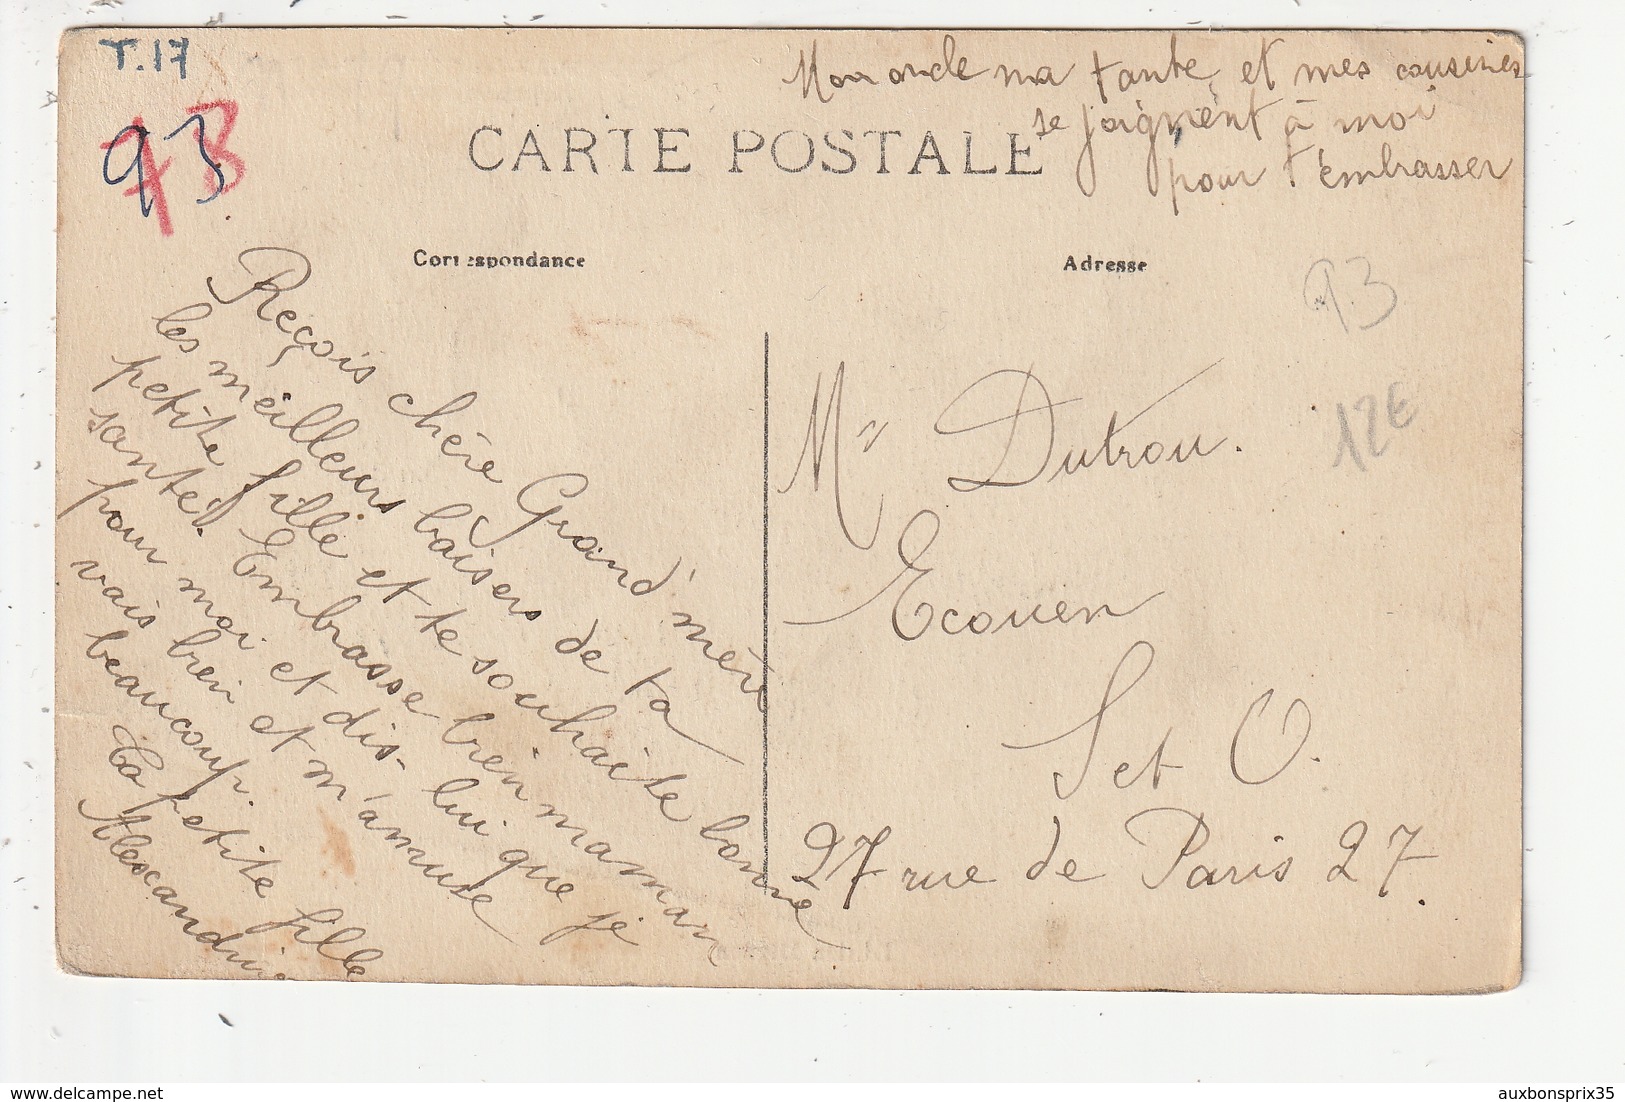 T.17
93
Mon oncle ma tante et mes cousines
se joignent à moi
pour t'embrasser
CARTE POSTALE
Correspondance
Adresse
Reçois chère Grand'mère
les meilleurs baisers de ta
petite fille et te souhaite bonne
santé. Embrasse bien maman
pour moi et dis-lui que je
vais bien et m'amuse
beaucoup.
Ta petite fille
Alexandrine
93
12€
Dutrou.
Ecouen
S et O.
27 rue de Paris 27.
delcampe.net
auxbonsprix35